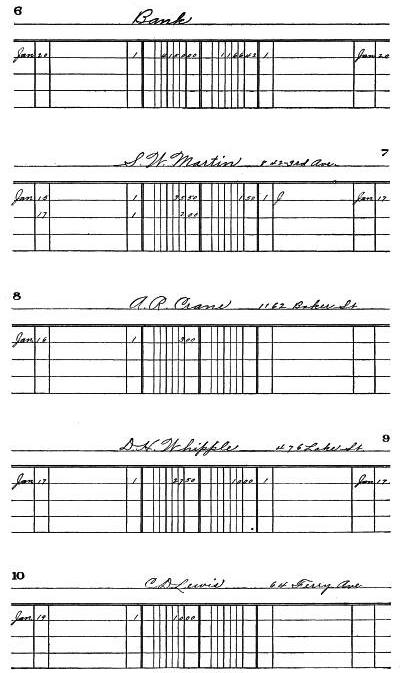 6
Bank
Jan 20 1 410000 116642 1 Jan 20
7
S. W. Martin 842-3rd Ave.
Jan 15 1 9550 150 1 J Jan 17
17 1 200
8
A. R. Crane 1162 Baker St
Jan 16 1 900
9
D. H. Whipple 476 Lake St
Jan 17 1 2750 1000 1 Jan 17
10
C D Lewis 64 Ferry Ave
Jan 19 1 1000